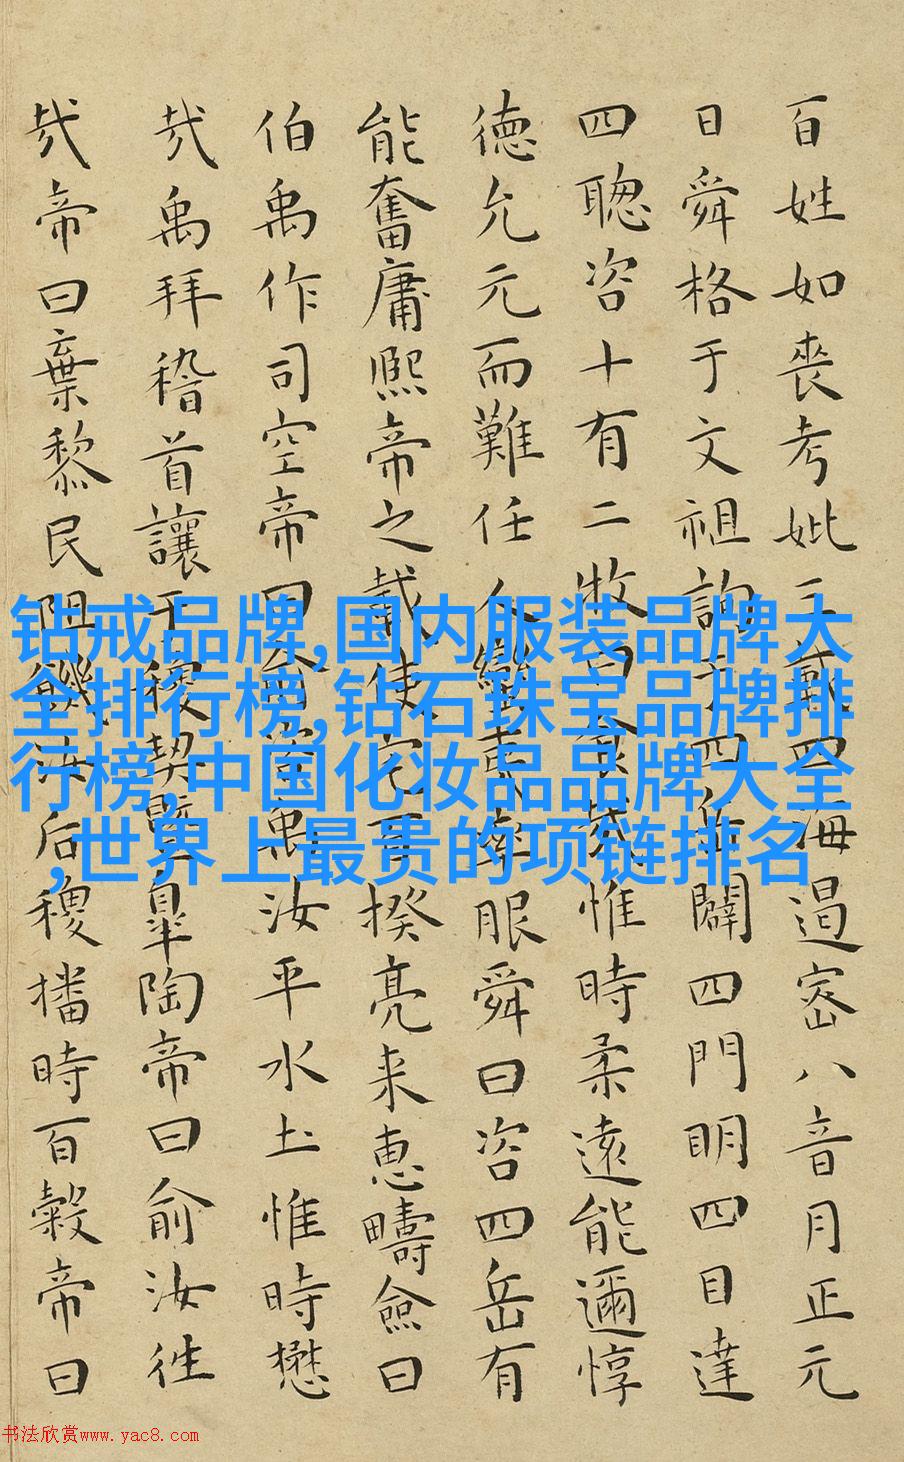 百姓如喪考妣三載四海遏密八音月正元
日舜格于文祖詢于四岳闢四門明四目達
四聰咨十有二牧曰食哉惟時柔遠能邇惇
德允元而難任人蠻夷率服舜曰咨四岳有
能奮庸熙帝之載使宅百揆亮采惠疇僉曰
伯禹作司空帝曰俞咨禹汝平水土惟時懋
哉禹拜稽首讓于稷契暨皐陶帝曰俞汝往
哉帝曰棄黎民阻饑汝后稷播時百穀帝曰
钻戒品牌,国内服装品牌大
全排行榜,钻石珠宝品牌排
行榜,中国化妆品品牌大全
,世界上最贵的项链排名
书法欣赏www.yac8.com